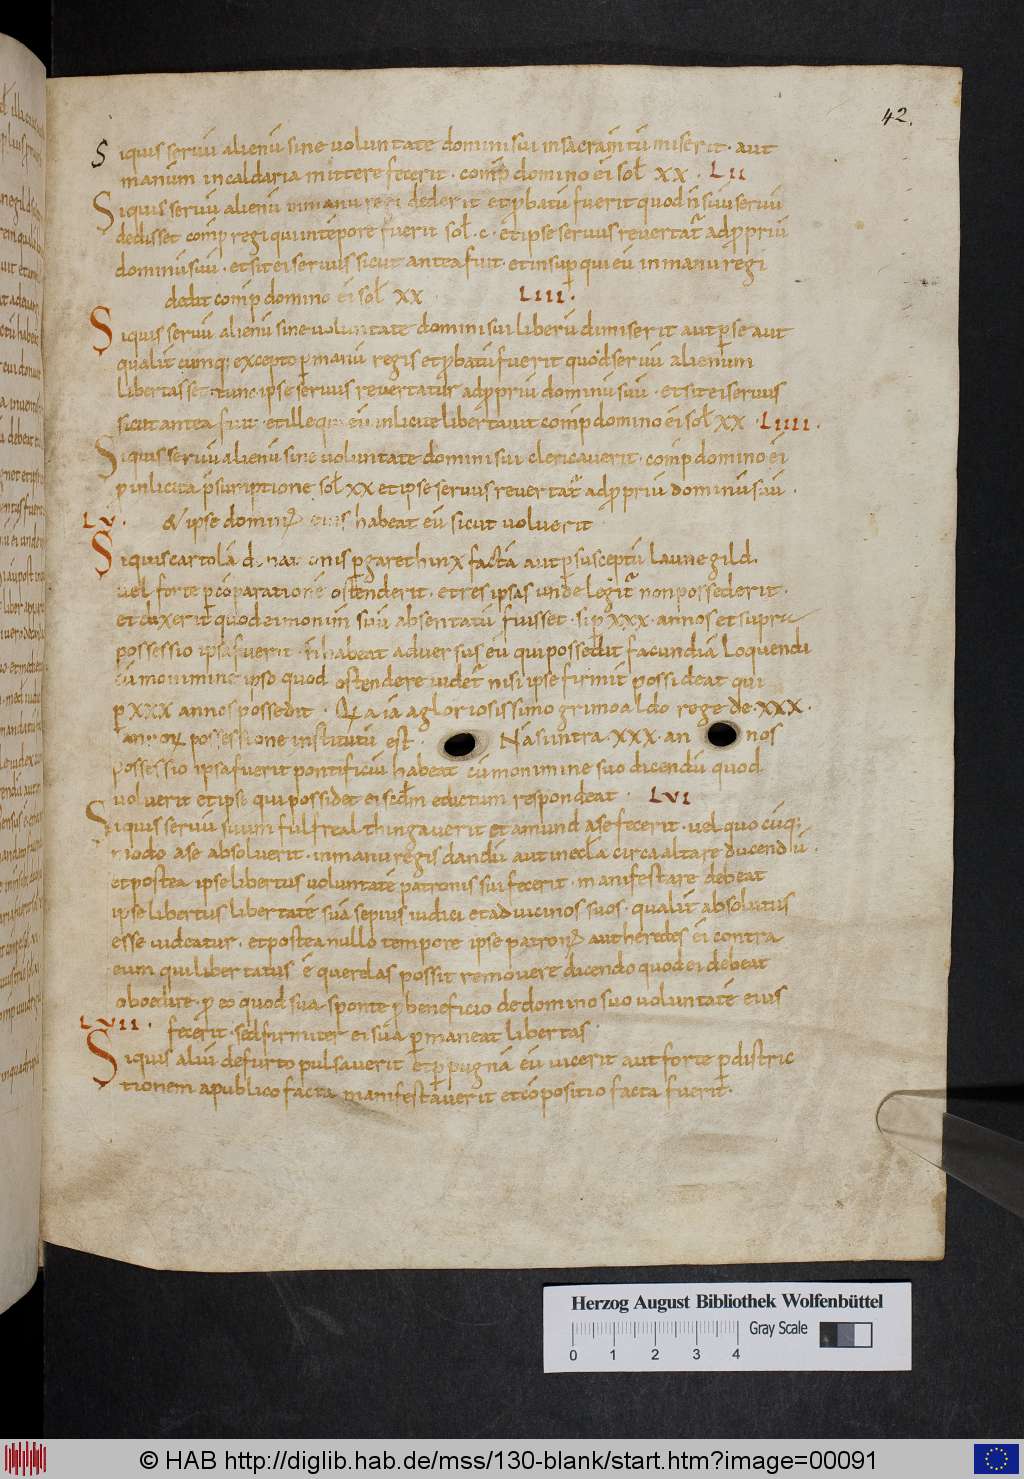 42.
Siquis seruū alienū sine uoluntate domini sui insacramtū miserit · aut
manum incaldaria mittere fecerit · comp̄ domino ei sol̄ XX · LII
Siquis seruū alienū inmanu regi dederit et ꝓbatū fuerit quod n̄ suū seruū
dedisset comp̄ regi qui intēpore fuerit sol̄ · c · et ipse seruus reuertat̄ ad ꝓpriū
dominū suū · et sit ei seruus sicut antea fuit · et insup̄ qui eū inmanu regi
dedit comp̄ domino ei sol̄ XX LIII ·
Siquis seruū alienū sine uoluntate domini sui liberū dimiserit aut p̄ se aut
qualit̄ cumq; excepto p̄ manū regis et ꝓbatū fuerit quod seruū alienum
libertasset · tunc ipse seruus reuertatur ad ꝓpriū dominū suū · et sit ei seruus
sicut antea fuit · et ille qui eū inlicite libertauit comp̄ domino ei sol̄ XX · LIIII ·
Siquis seruū alienū sine uoluntate domini sui clericauerit · comp̄ domino ei
p̄ inlicita p̄sumptione sol̄ XX et ipse seruus reuertat̄ ad ꝓpriū dominū suū ·
LV · & ipse domin' eius habeat eū sicut uoluerit
Siquis cartolā donationis p̄ garethinx factā aut p̄ susceptū launegild ·
uel forte p̄ cōparationē ostenderit · et res ipsas unde legit̄ non possederit ·
et dixerit quod ei monim̄ suū absentatū fuisset · si p̄ XXX · annos et supra
possessio ipsa fuerit · n̄ habeat aduersus eū qui possedit facundiā loquendi
cū monimine ipso quod ostendere uidet̄ nisi ipse firmit̄ possideat qui
p̄ XXX annos possedit · Q̄ a iā a gloriosissimo grimoaldo rege de · XXX ·
annorꝝ possessione institutū est · Nā si intra · XXX · an nos
possessio ipsa fuerit pontificiū habeat cū monimine suo dicendū quod
uoluerit et ipse qui possidet ei scd̄m edictum respondeat · LVI
Siquis seruū suum fulfreal thingauerit et amund a se fecerit · uel quo cūq;
modo a se absoluerit · inmanu regis dandū aut inecl̄a circa altare ducendū ·
et postea ipse libertus uoluntatē patronis sui fecerit · manifestare debeat
ipse libertus libertatē suā sepius iudici et ad uicinos suos · qualit̄ absolutus
esse uideatur · et postea nullo tempore ipse patron' aut heredes ei contra
eum qui libertatus ē querelas possit remouere dicendo quod ei debeat
oboedire · p̄ eo quod sua sponte ꝓ beneficio de domino suo uoluntatē eius
LVII · fecerit · sed firmiter ei sua p̄maneat libertas ·
Siquis aliū de furto pulsauerit et p̄ pugnā eū uicerit aut forte p̄ distric
tionem a publico facta manifestauerit et cōpositio facta fuerit ·
Herzog August Bibliothek Wolfenbüttel
Gray Scale
0 1 2 3 4
© HAB http://diglib.hab.de/mss/130-blank/start.htm?image=00091